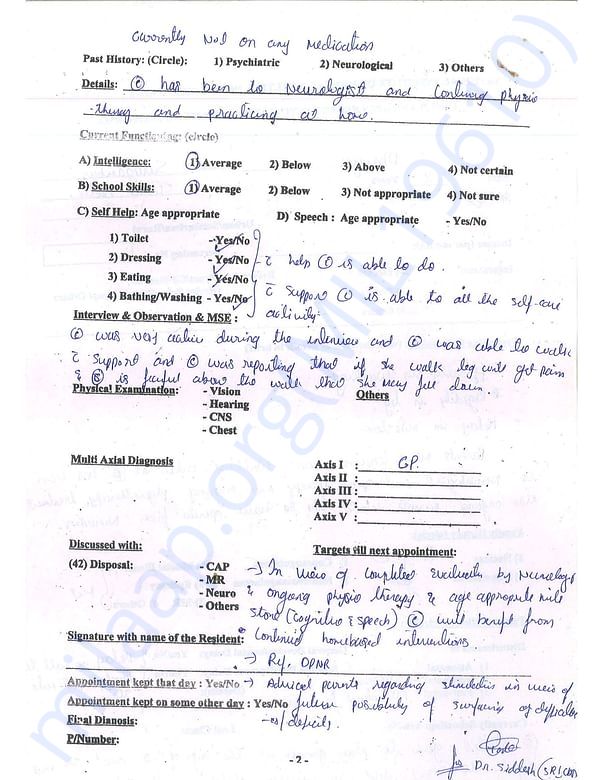 Currently Not on any Medication
Past History: (Circle): 1) Psychiatric 2) Neurological 3) Others
Details: (C) has been to Neurologist and Continuing physio
-therapy and practicing at home.
Current Functioning: (circle)
A) Intelligence: 1) Average 2) Below 3) Above 4) Not certain
B) School Skills: 1) Average 2) Below 3) Not appropriate 4) Not sure
C) Self Help: Age appropriate D) Speech : Age appropriate - Yes/No
1) Toilet - Yes/No
2) Dressing - Yes/No c̄ help (C) is able to do.
3) Eating - Yes/No
4) Bathing/Washing - Yes/No c̄ support (C) is able to all the self-care
Interview & Observation & MSE : activity.
(C) was very active during the interview and (C) was able to walk
c̄ support and (C) was reporting that if she walk leg will get pain
& (C) is fearful about the walk that she may fall down.
Physical Examination: - Vision Others
- Hearing
- CNS
- Chest
Multi Axial Diagnosis
Axis I : CP.
Axis II :
Axis III :
Axis IV :
Axix V :
Discussed with: Targets till next appointment:
(42) Disposal: - CAP → In view of completed evaluation by Neurologist
- MR & ongoing physio therapy & age appropriate mile
- Neuro stone (cognitive & speech) (C) will benefit from
- Others
Signature with name of the Resident: Continued homebased interventions.
→ Ref. DPNR
Appointment kept that day : Yes/No → Advised parents regarding stimulation in view of
Appointment kept on some other day : Yes/No future possibility of difficulties
Final Dianosis: /deficits.
P/Number:
- 2 -
Dr. Siddesh (SR/CAP)
milaap.org(MIL19610)